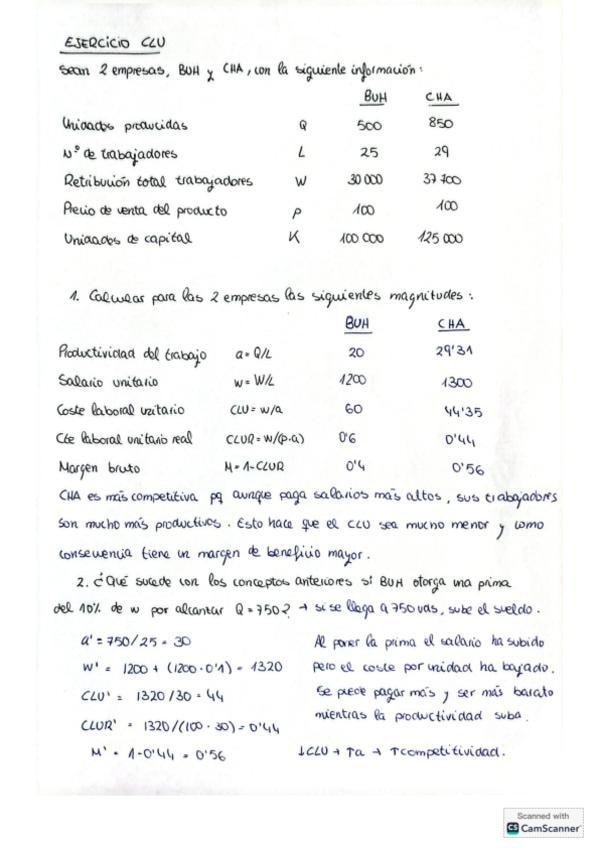 EJERCICIO CLU
Sean 2 empresas, BUH y CHA, con la siguiente información:
BUH CHA
Unidades producidas Q 500 850
Nº de trabajadores L 25 29
Retribución total trabajadores W 30 000 37 700
Precio de venta del producto P 100 100
Unidades de capital K 100 000 125 000
1. Calcular para las 2 empresas las siguientes magnitudes:
BUH CHA
Productividad del trabajo a = Q/L 20 29'31
Salario unitario w = W/L 1200 1300
Coste laboral uitario CLU = w/a 60 44'35
Cte laboral unitario real CLUR = w/(p·a) 0'6 0'44
Margen bruto M = 1-CLUR 0'4 0'56
CHA es más competitiva pq aunque paga salarios más altos, sus trabajadores
son mucho más productivos. Esto hace que el CLU sea mucho menor y como
consecuencia tiene un margen de beneficio mayor.
2. ¿Qué sucede con los conceptos anteriores si BUH otorga una prima
del 10% de w por alcanzar Q = 750? → si se llega a 750 uds, sube el sueldo.
a' = 750/25 = 30
w' = 1200 + (1200·0'1) = 1320
CLU' = 1320/30 = 44
CLUR' = 1320/(100·30) = 0'44
M' = 1-0'44 = 0'56
Al poner la prima el salario ha subido
pero el coste por unidad ha bajado.
Se puede pagar más y ser más barato
mientras la productividad suba.
↓CLU → ↑a → ↑competitividad.
Scanned with
CS CamScanner